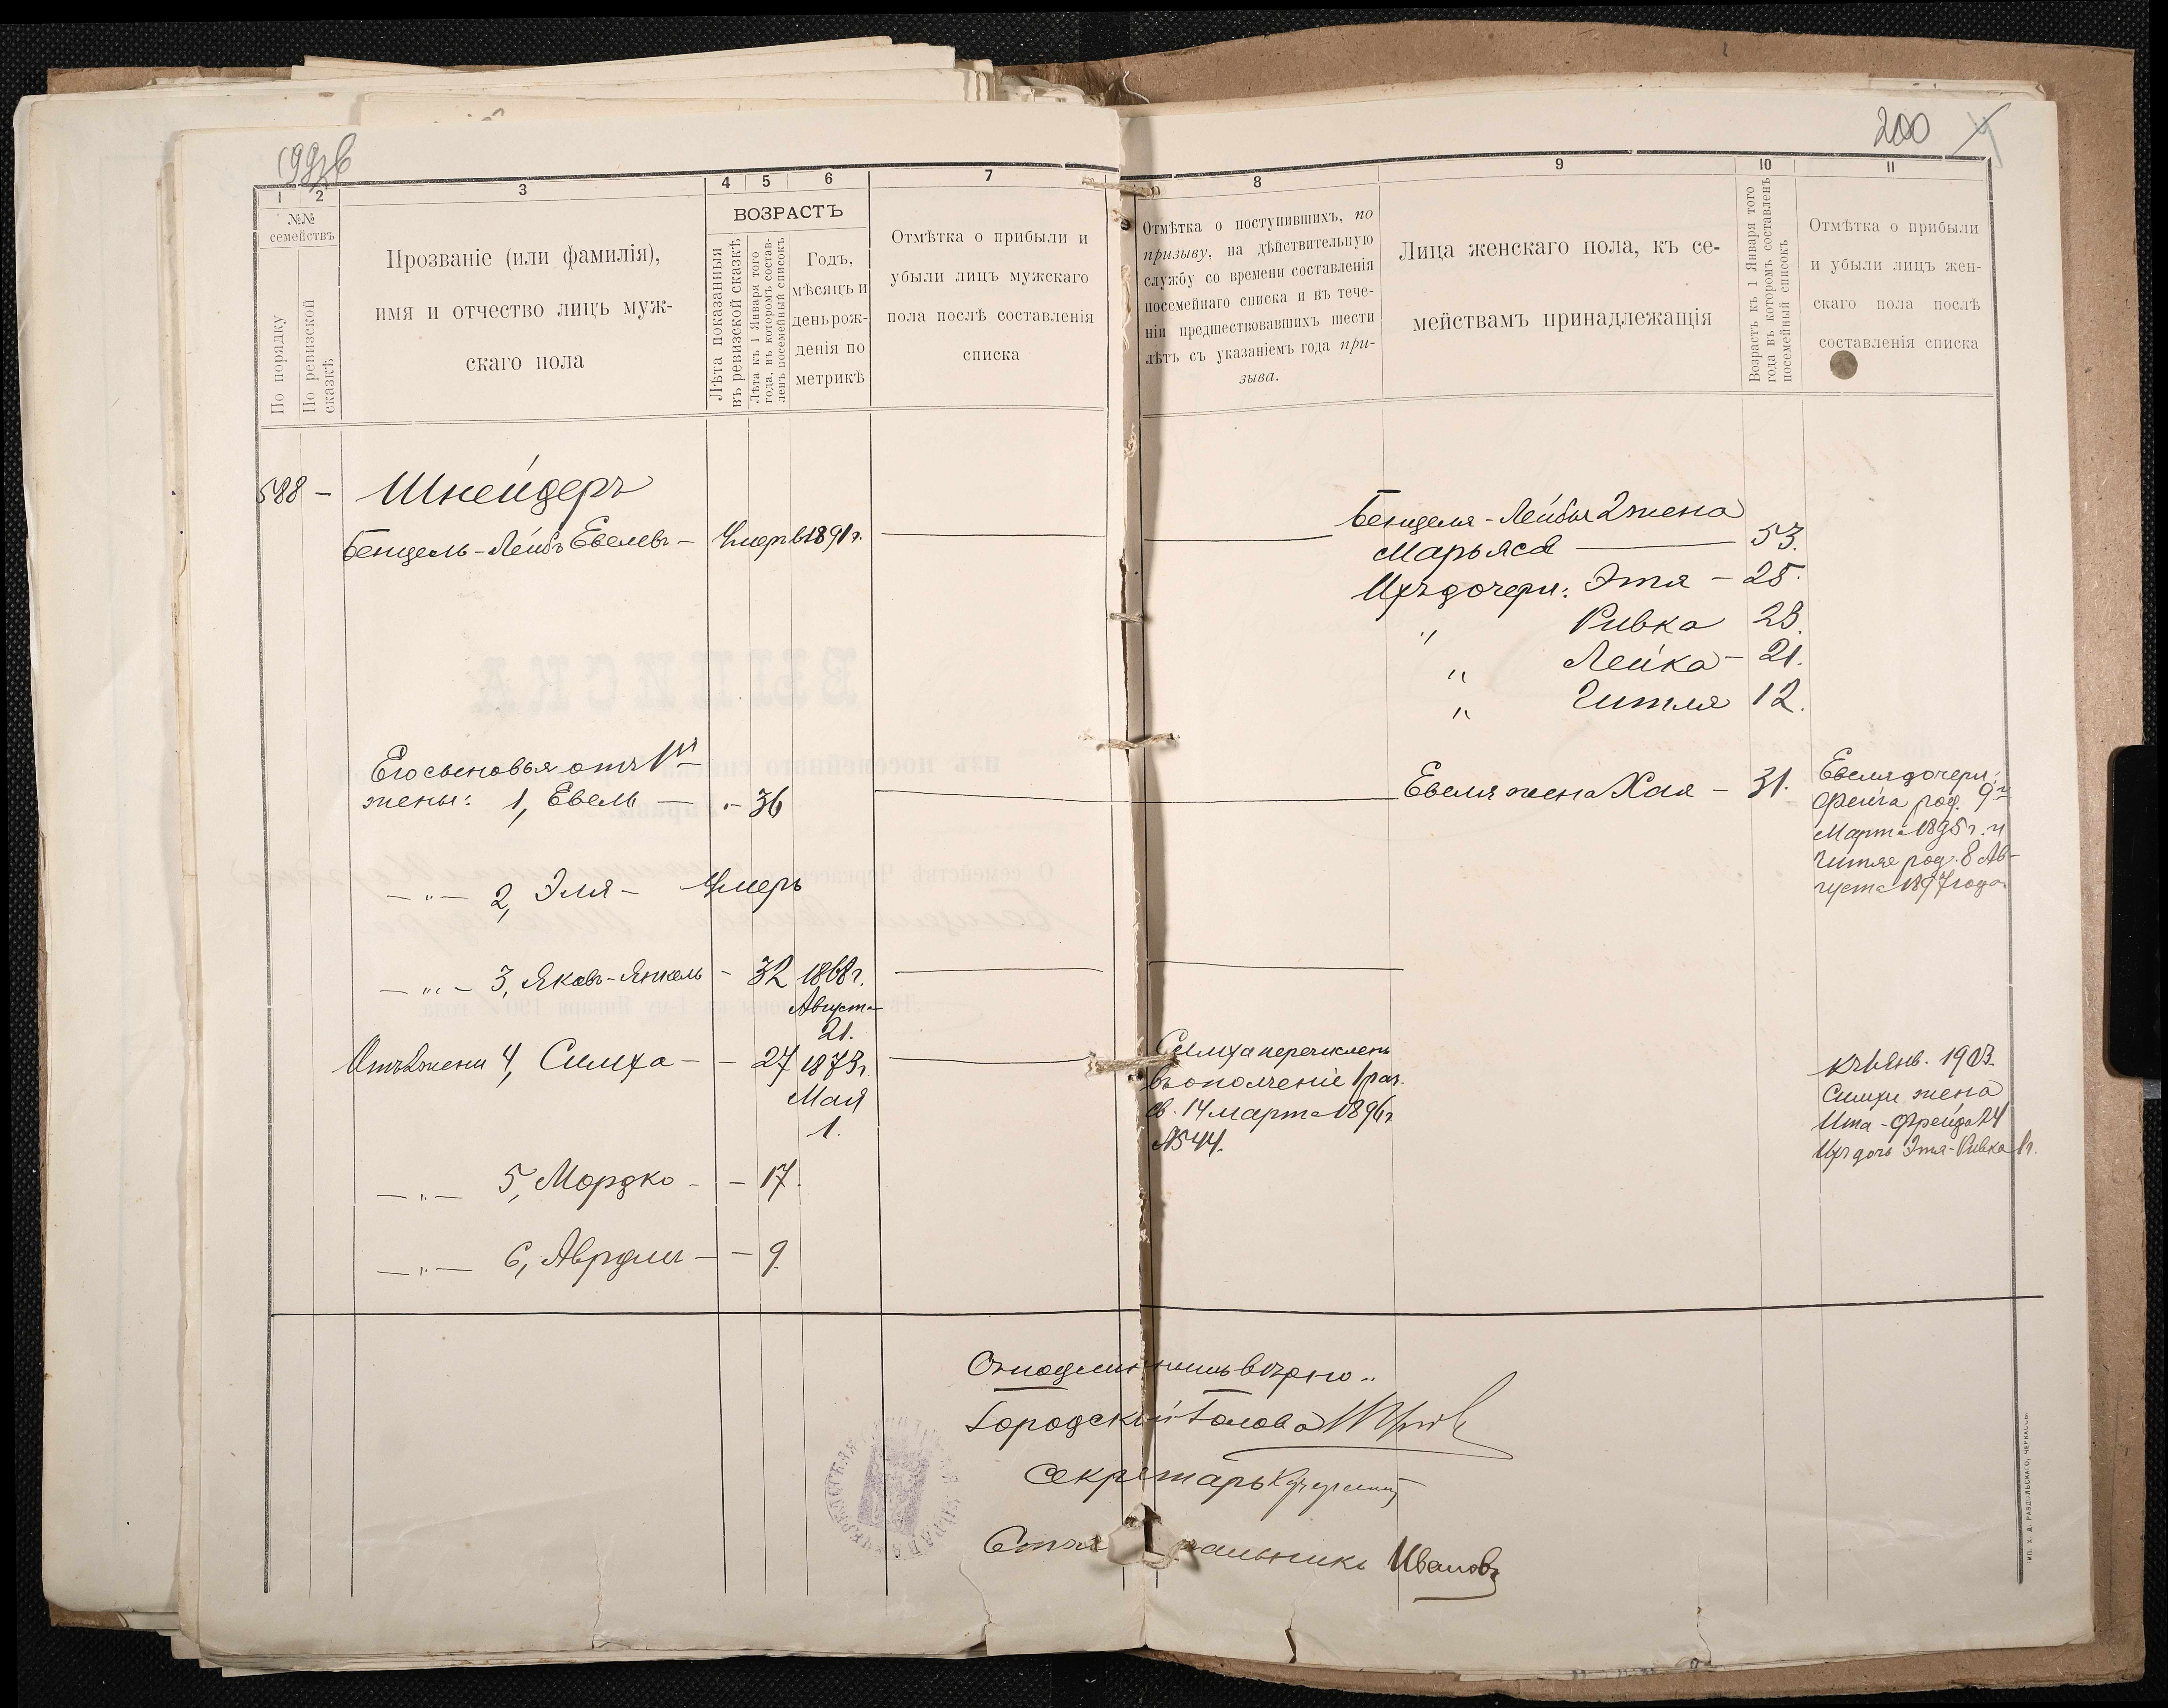 199об
200
1 2 3 4 5 6 7
№№ семействъ
По порядку
По ревизской сказкѣ
Прозваніе (или фамилія),
имя и отчество лицъ муж-
скаго пола
ВОЗРАСТЪ
Лѣта показанныя
въ ревизской сказкѣ
Лѣта къ 1 Января того
года, въ которомъ состав-
ленъ посемейный списокъ
Годъ,
мѣсяцъ и
день рож-
денія по
метрикѣ
Отмѣтка о прибыли и
убыли лицъ мужскаго
пола послѣ составленія
списка
8 9 10 11
Отмѣтка о поступившихъ, по
призыву, на дѣйствительную
службу со времени составленія
посемейнаго списка и въ тече-
ніи предшествовавшихъ шести
лѣтъ съ указаніемъ года при-
зыва.
Лица женскаго пола, къ се-
мействамъ принадлежащія
Возрастъ къ 1 Января того
года въ которомъ составленъ
посемейный списокъ
Отмѣтка о прибыли
и убыли лицъ жен-
скаго пола послѣ
составленія списка
588 — Шнейдеръ
Бенцель-Лейбъ Евелевъ — Умеръ в 1891 г.
Бенцеля-Лейбы 2 жена
Марьяся — 53.
Ихъ дочери: Этя — 25.
" Ривка 23.
" Лейка — 21.
" Гитля 12.
Его сыновья отъ 1й
жены: 1, Евель — " — 36
Евеля жена Хая — 31.
Евеля дочери:
Фейга род. 9го
Марта 1895 г. и
Гитля род. 8 Ав-
густа 1897 года
— " — 2, Эля — Умеръ
— " — 3, Яковъ-Янкель — 32 1868 г.
Августа
21.
Отъ 2 жены 4, Симха — — 27 1873 г.
Мая
1.
Симха перечисленъ
въ ополченіе 1 раз.
св. 14 марта 1896 г
№544.
къ 1 янв. 1903.
Симхи жена
Ита-Фрейда 24
Ихъ дочь Этя-Ривка 1 г.
— " — 5, Мордко — — 17.
— " — 6, Аврумъ — — 9.
Съ подлиннымъ вѣрно..
Городской Голова
Секретарь
Ивановъ
ВЫПИСКА
изъ посемейнаго списка
ТИП. Х. Д. РАЗДОЛЬСКАГО, ЧЕРКАССЫ